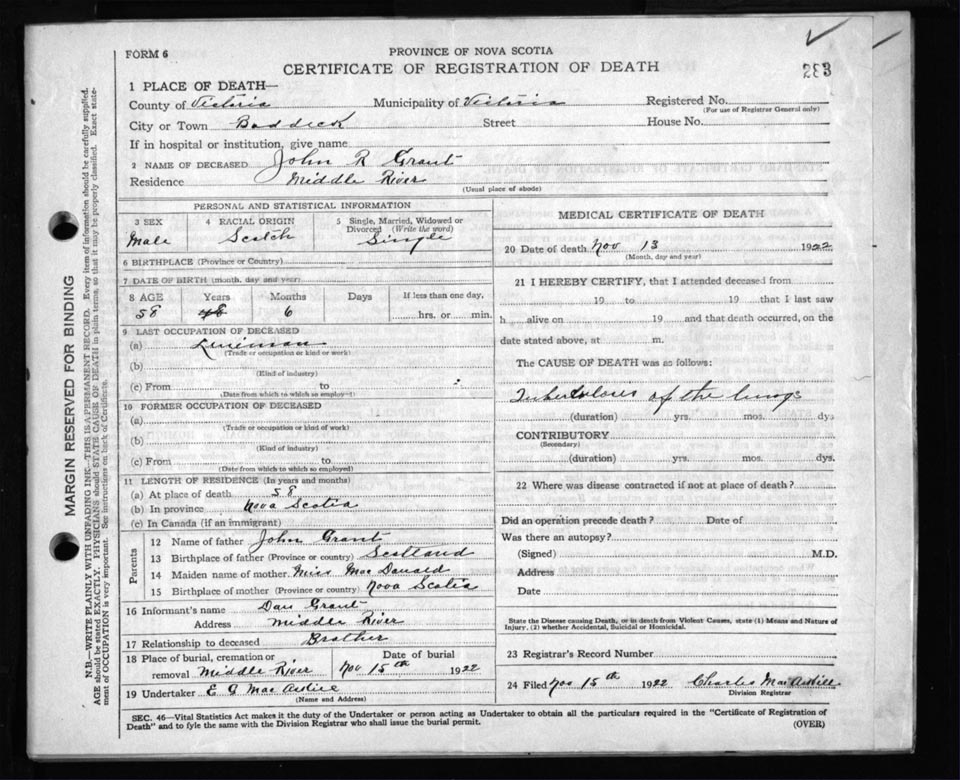 FORM 6
PROVINCE OF NOVA SCOTIA
CERTIFICATE OF REGISTRATION OF DEATH
283
1 PLACE OF DEATH—
County of Victoria Municipality of Victoria Registered No.
(For use of Registrar General only)
City or Town Baddeck Street House No.
If in hospital or institution, give name
2 NAME OF DECEASED John R Grant
Residence Middle River
(Usual place of abode)
PERSONAL AND STATISTICAL INFORMATION
3 SEX 4 RACIAL ORIGIN 5 Single, Married, Widowed or
Divorced (Write the word)
Male Scotch Single
6 BIRTHPLACE (Province or Country)
7 DATE OF BIRTH (month, day and year)
8 AGE Years Months Days If less than one day,
58 6 hrs. or min.
9 LAST OCCUPATION OF DECEASED
(a) Lineman
(Trade or occupation or kind of work)
(b)
(Kind of industry)
(c) From to
(Date from which to which so employed)
10 FORMER OCCUPATION OF DECEASED
(a)
(Trade or occupation or kind of work)
(b)
(Kind of industry)
(c) From to
(Date from which to which so employed)
11 LENGTH OF RESIDENCE (In years and months)
(a) At place of death 58
(b) In province Nova Scotia
(c) In Canada (if an immigrant)
Parents
12 Name of father John Grant
13 Birthplace of father (Province or country) Scotland
14 Maiden name of mother Miss MacDonald
15 Birthplace of mother (Province or country) Nova Scotia
16 Informant's name Dan Grant
Address Middle River
17 Relationship to deceased Brother
18 Place of burial, cremation or Date of burial
removal Middle River Nov 15th 1922
19 Undertaker E G Mac
(Name and Address)
MEDICAL CERTIFICATE OF DEATH
20 Date of death Nov 13 1922
(Month, day and year)
21 I HEREBY CERTIFY, that I attended deceased from
19 to 19 that I last saw
h alive on 19 and that death occurred, on the
date stated above, at m.
The CAUSE OF DEATH was as follows:
Tuberculosis of the lungs
(duration) yrs. mos. dys
CONTRIBUTORY
(Secondary)
(duration) yrs. mos. dys.
22 Where was disease contracted if not at place of death?
Did an operation precede death? Date of
Was there an autopsy?
(Signed) M.D.
Address
Date
State the Disease causing Death, or in death from Violent Causes, state (1) Means and Nature of
Injury, (2) whether Accidental, Suicidal or Homicidal.
23 Registrar's Record Number
24 Filed Nov 15th 1922 Charles Mac
Division Registrar
SEC. 46—Vital Statistics Act makes it the duty of the Undertaker or person acting as Undertaker to obtain all the particulars required in the "Certificate of Registration of
Death" and to fyle the same with the Division Registrar who shall issue the burial permit. (OVER)
MARGIN RESERVED FOR BINDING
N.B.—WRITE PLAINLY WITH UNFADING INK—THIS IS A PERMANENT RECORD. Every item of information should be carefully supplied.
AGE should be stated EXACTLY. PHYSICIANS should STATE CAUSE OF DEATH in plain terms, so that it may be properly classified. Exact state-
ment of OCCUPATION is very important. See instructions on back of Certificate.